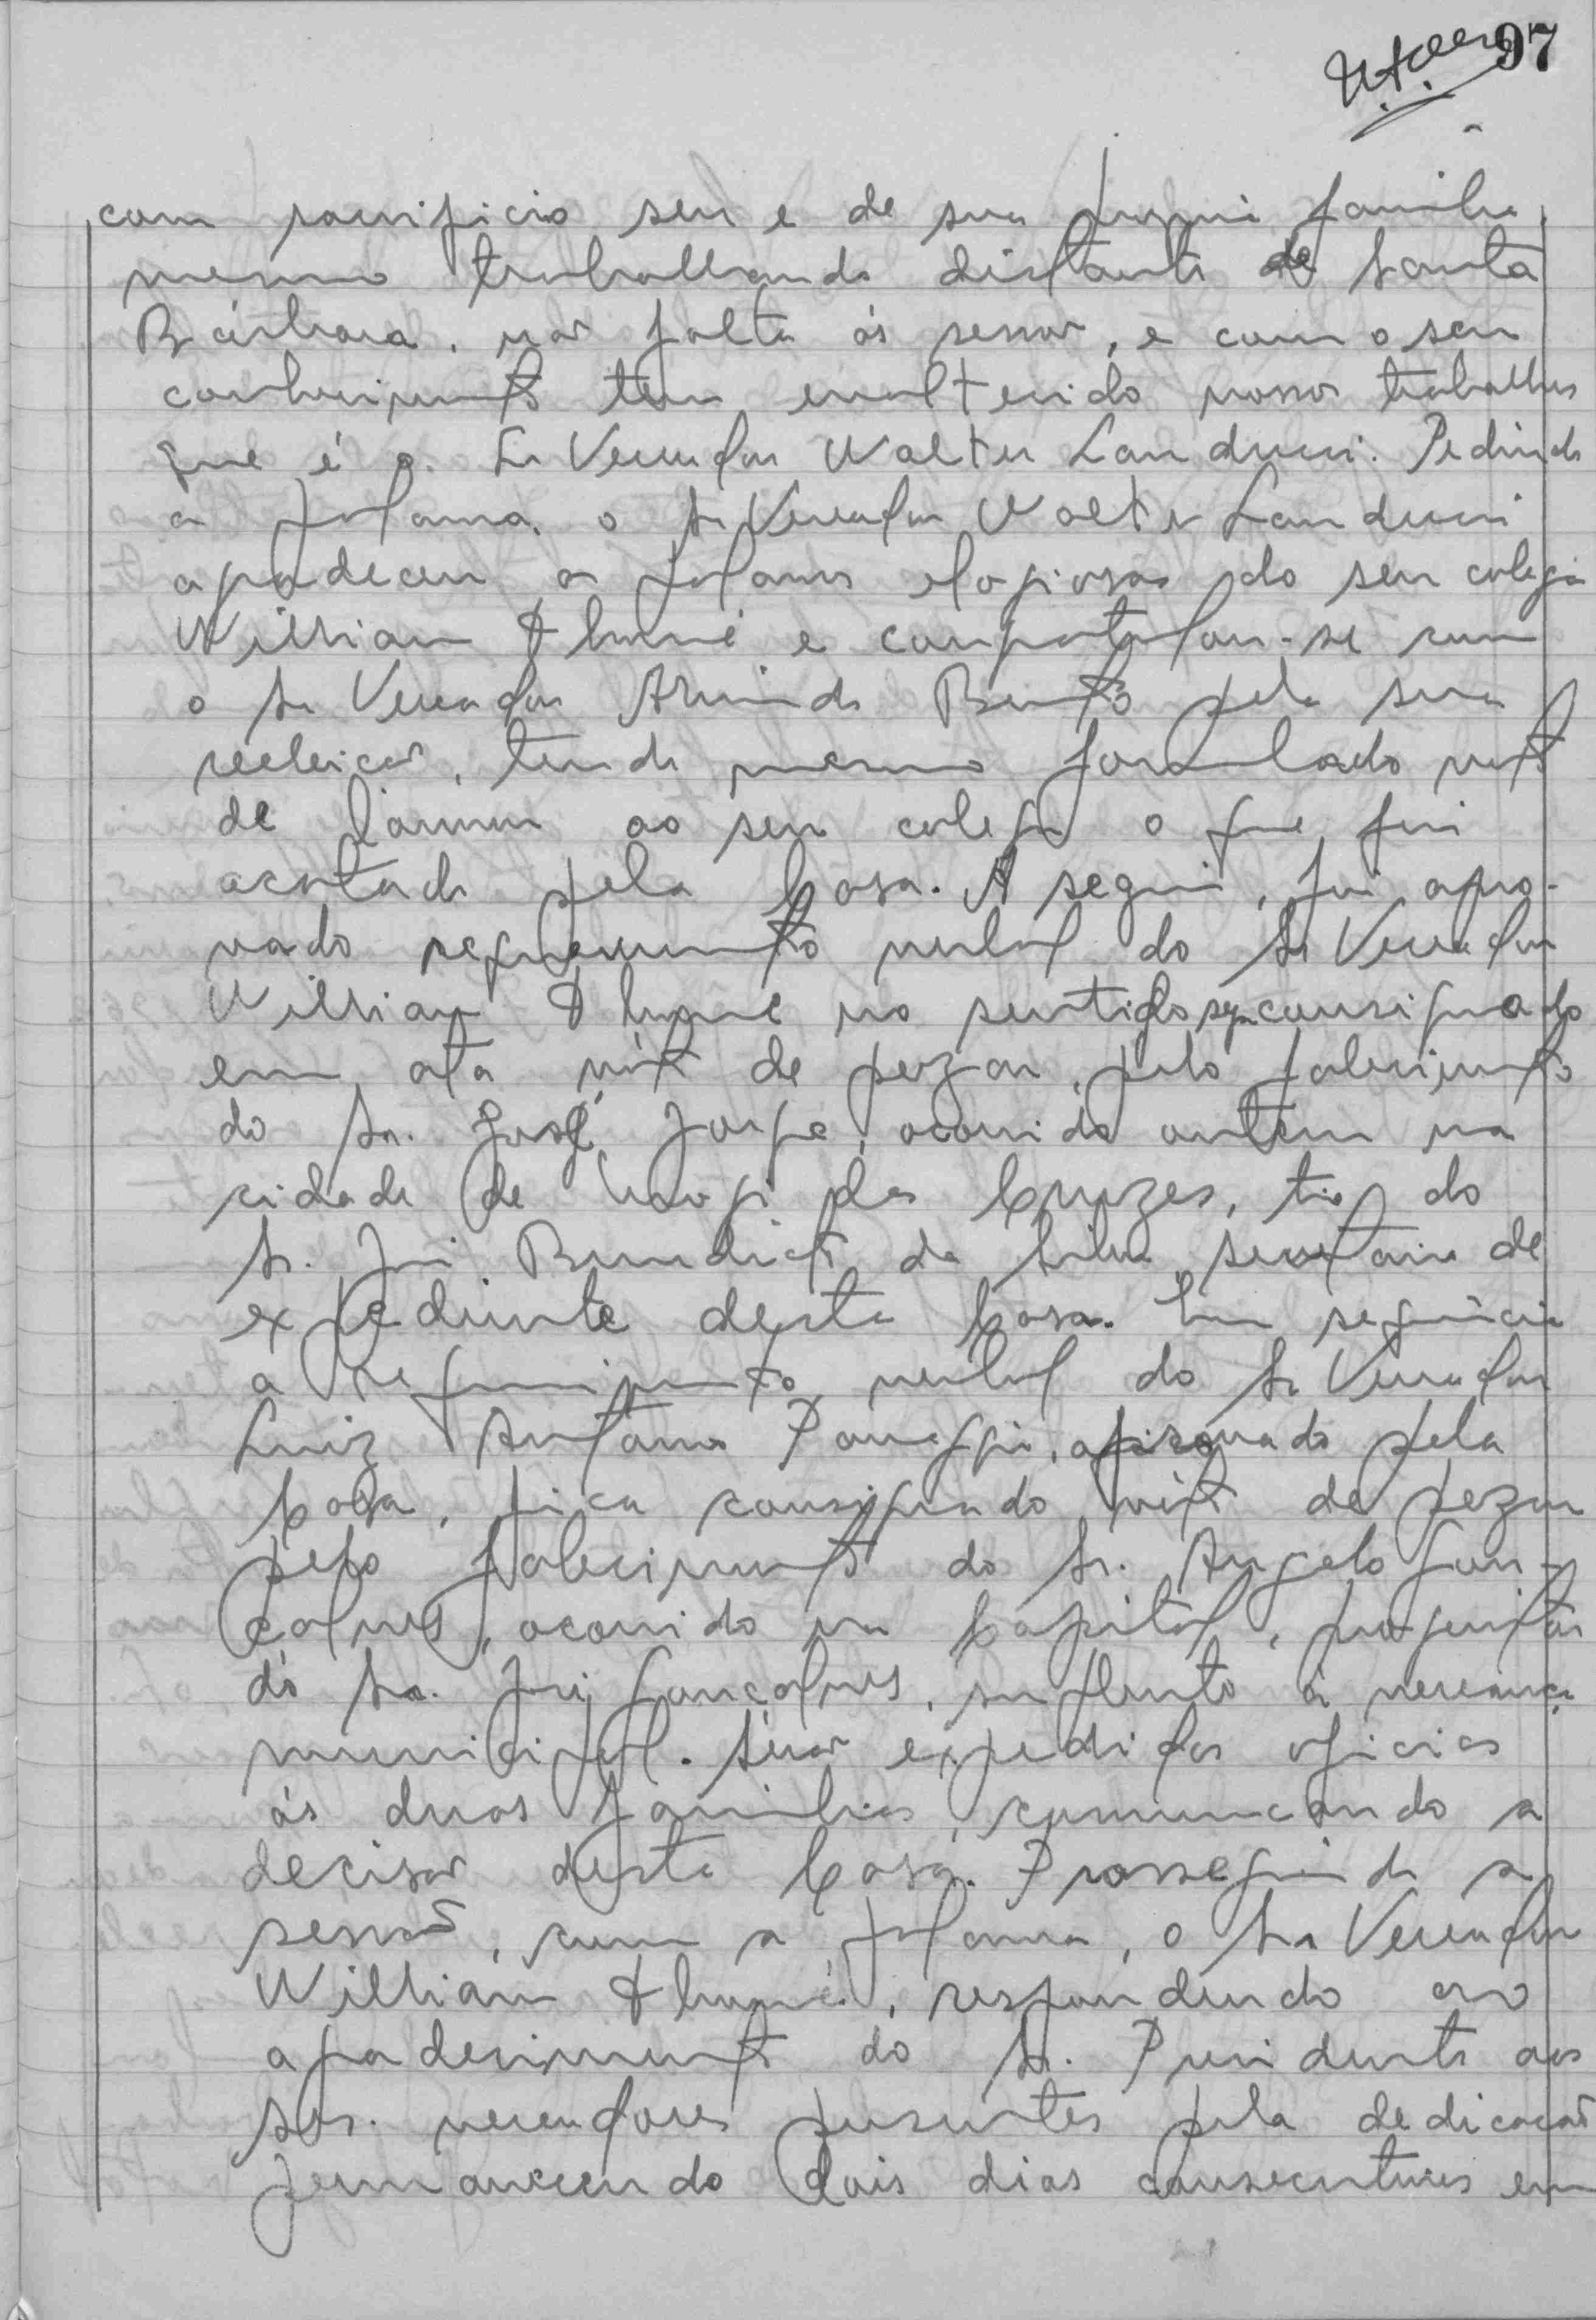 97
com sacrificio seu e de sua propria familia
mesmo trabalhando distante de Santa
Bárbara, não falta às sessões, e com o seu
conhecimento tem enaltecido nossos trabalhos
que é o Sr Vereador Walter Landucci. Pedindo
a palavra, o Sr Vereador Walter Landucci
agradeceu as palavras elogiosas do seu colega
Willian e congratulou-se com
o Sr Vereador Armindo Bento pela sua
reeleição, tendo mesmo formulado voto
de louvor ao seu colega o que foi
acatado pela Casa. A seguir, foi apro-
vado requerimento verbal do Sr Vereador
Willian no sentido seja consignado
em ata vóto de pezar pelo falecimento
do Sr. José Jorge, ocorrido ontem na
cidade de Mogi das Cruzes, tio do
Sr. José Benedicto da Silva, secretario de
expediente desta Casa. Em sequência
a requerimento verbal do Sr Vereador
Luiz Antonio Panaggio, aprovado pela
Casa, fica consignado vóto de pezar
pelo falecimento do Sr. Angelo Gon-
çalves, ocorrido na Capital, progenitor
do Sr. José Gonçalves, suplente à vereança
municipal. Serão expedidos oficios
às duas familias, comunicando a
decisão desta Casa. Prosseguindo a
sessão, com a palavra, o Sr Vereador
Willian, respondendo ao
agradecimento do Sr. Presidente aos
srs. vereadores presentes pela dedicação
permanecendo dois dias consecutivos em